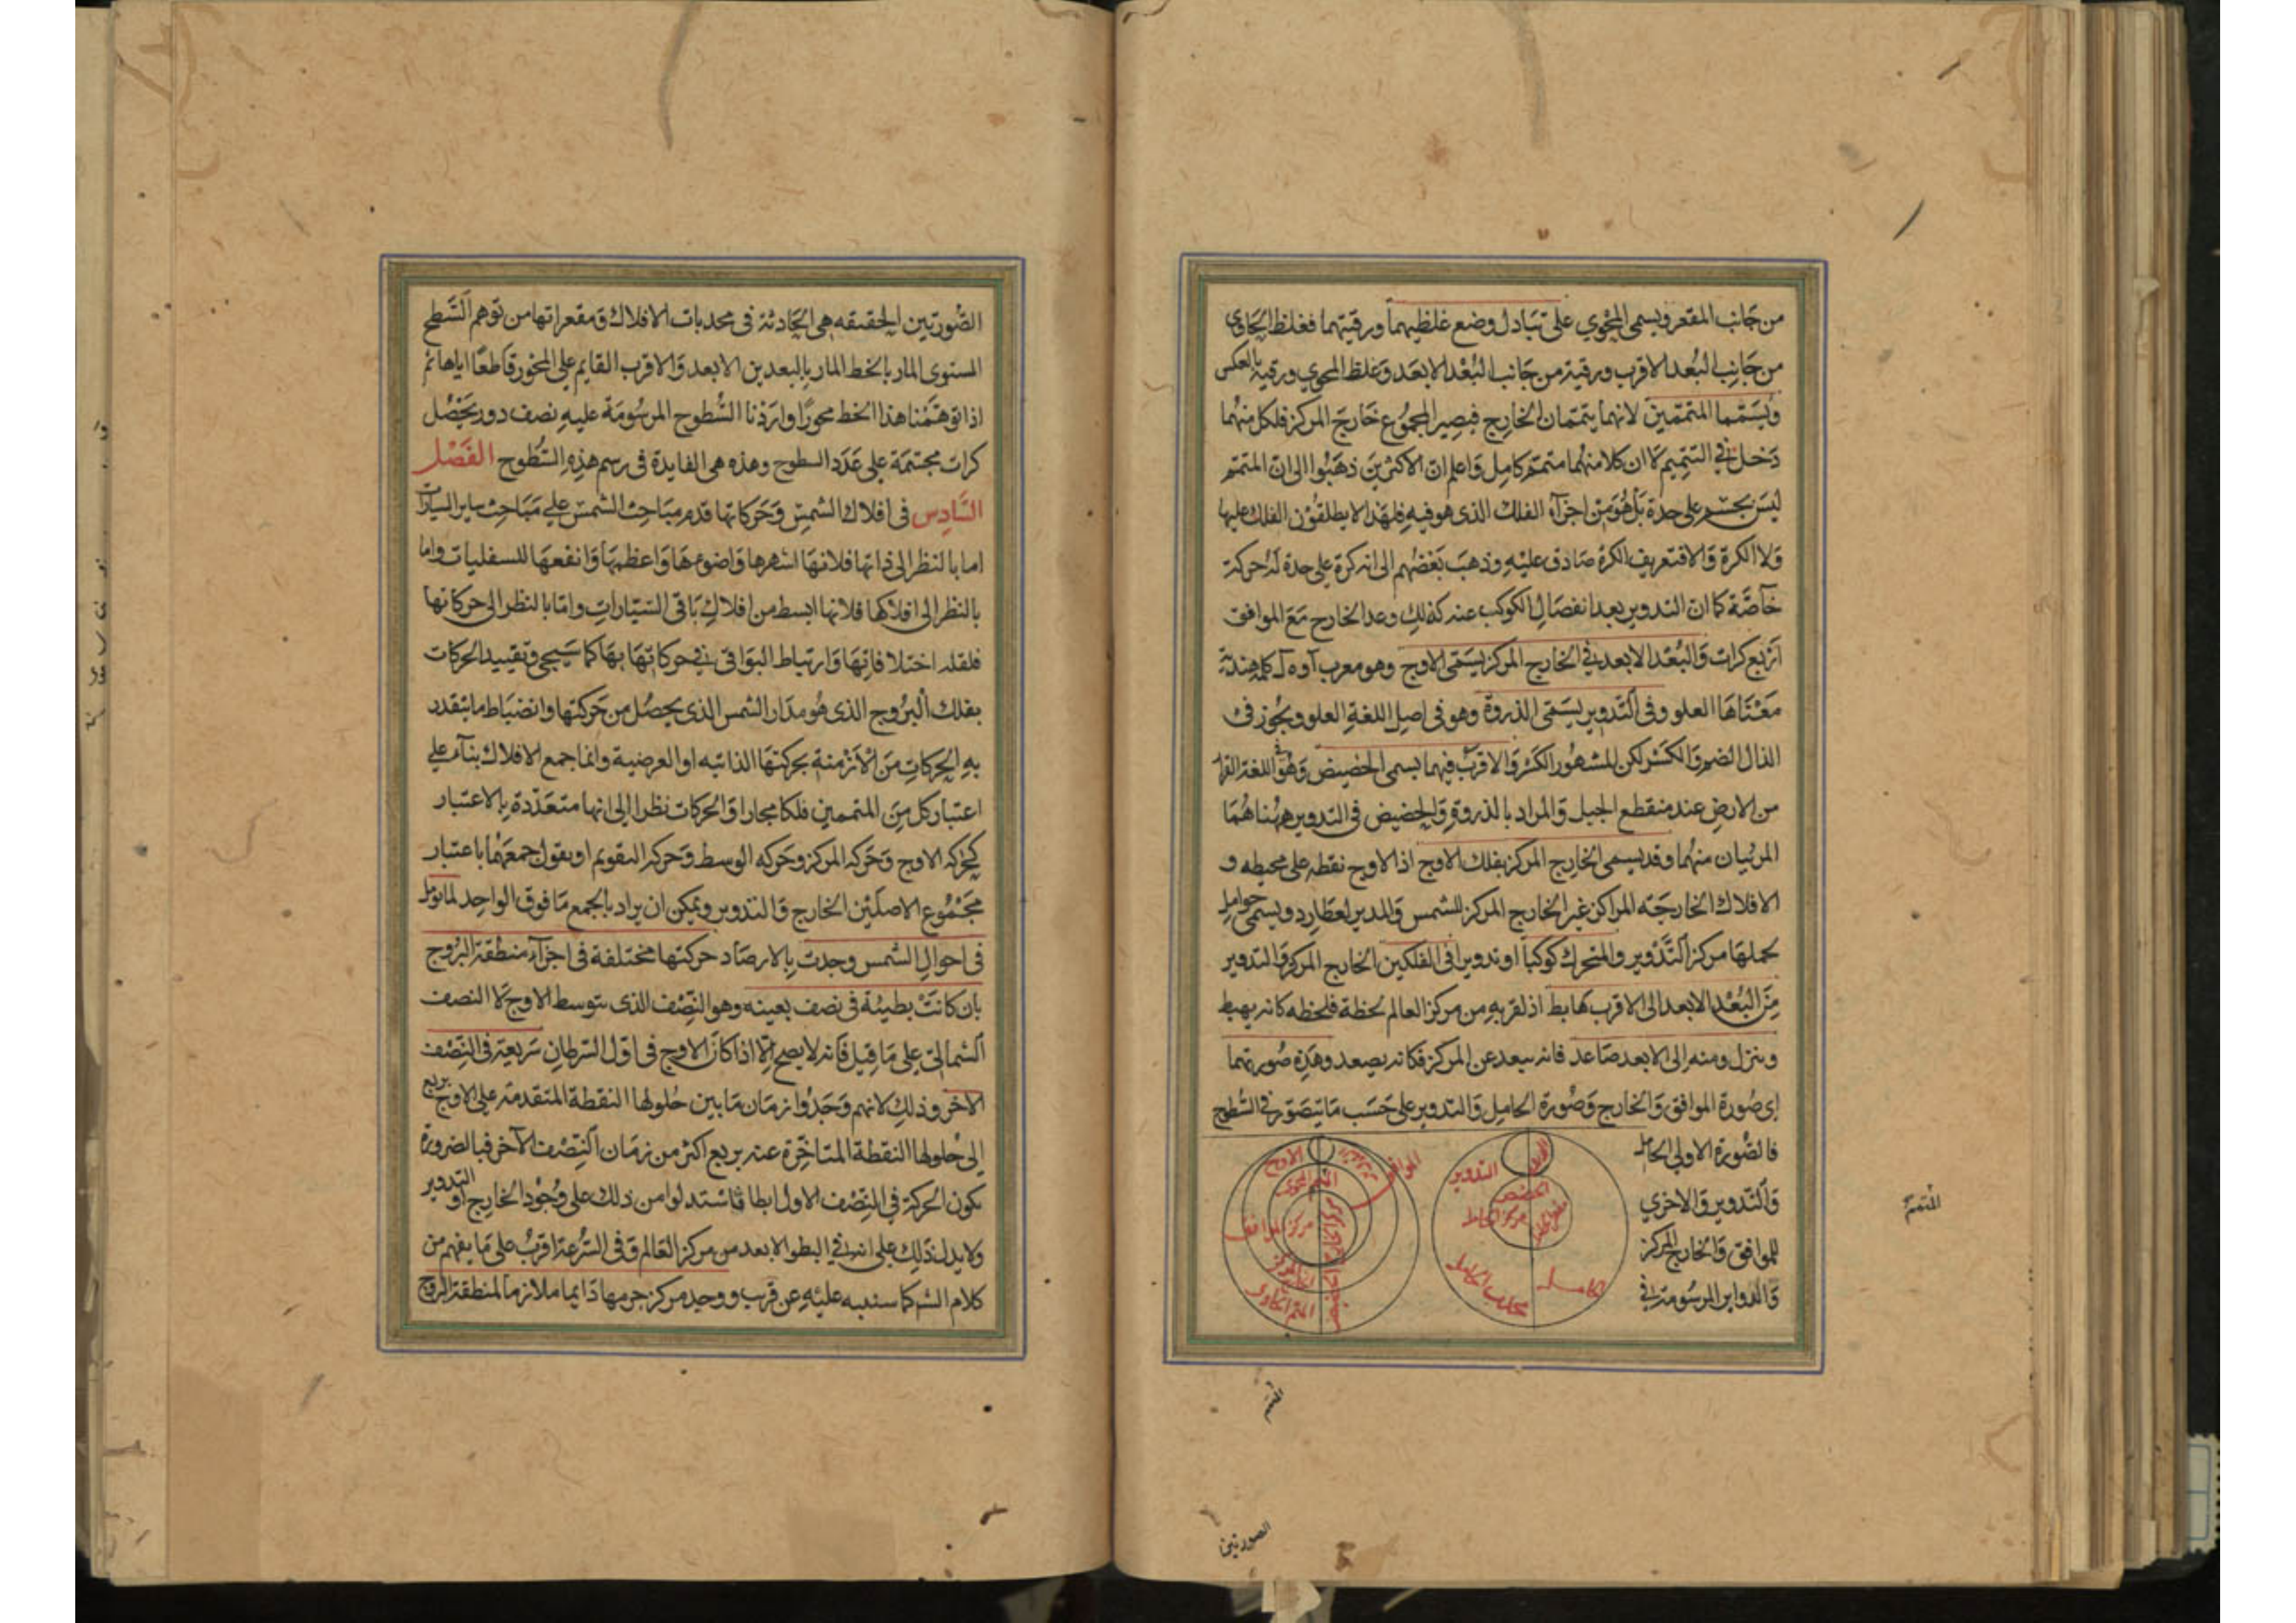 من جانب المقعر ويسمى المحوي على تبادل وضع غلظيهما ورقيتهما فغلظ الحاوى
من جانب البعد الاقرب ورقيته من جانب البعد الابعد وغلظ المحوي ورقيته بالعكس
ويسميا المتممين لانهما يتممان الخارج فيصير المجموع خارج المركز فلكل منهما
دخل في التتميم لا ان كلا منهما متمم كامل واعلم ان الاكثرين ذهبوا الى ان المتمم
ليس بجسم على حدة بل هو من اجزاء الفلك الذى هو فيه فلهذا لا يطلقون الفلك عليها
ولا الكرة والا فتعريف الكرة صادق عليه وذهب بعضهم الى انه كرة على حدة له حركة
خاصة كما ان التدوير بعد انفصال الكوكب عنه كذلك وعد الخارج مع الموافق
اربع كرات والبعد الابعد في الخارج المركز يسمى الاوج وهو معرب كلمة هندية
معناها العلو وفى التدوير يسمى الذروة وهو فى اصل اللغة العلو ويجوز فى
الذال الضم والكسر لكن المشهور الكسر والاقرب فيهما يسمى الحضيض وهو فى اللغة القرار
من الارض عند منقطع الجبل والمراد بالذروة والحضيض فى التدوير ههنا هما
المرئيان منهما وقد يسمى الخارج المركز بفلك الاوج اذ الاوج نقطه على محيطه و
الافلاك الخارجة المراكز غير الخارج المركز للشمس والمدير لعطارد ويسمى حوامل
لحملها مركز التدوير والمتحرك كوكبا او تدويرا فى الفلكين الخارج المركز والتدوير
من البعد الابعد الى الاقرب هابط اذ لقربه من مركز العالم لحظة فلحظه كانه يهبط
وينزل ومنه الى الابعد صاعد فانه يبعد عن المركز فكانه يصعد وهذه صورتهما
اى صورة الموافق والخارج وصورة الحامل والتدوير على حسب ما يتصور في السطوح
فالصورة الاولى الحامل
والتدوير والاخري
للموافق والخارج المركز
والدواير المرسومة في
التدوير
الحضيض
مركز الحامل
الاوج
مركز الموافق
المتمم الحاوى
المتمم
الصورتين
الصورتين الحقيقه هى الحادثة فى محدبات الافلاك ومقعراتها من توهم السطح
المستوى المار بالخط المار بالبعدين الابعد والاقرب القايم على المحور قاطعا اياها ثم
اذا توهمنا هذا الخط محورا وارذنا السطوح المرسومة عليه نصف دور يحصل
كرات مجتمة على عدد السطوح وهذه هى الفايدة فى رسم هذه السطوح الفصل
السادس فى افلاك الشمس وحركاتها قدم مباحث الشمس على مباحث ساير السيارات
اما بالنظر الى ذاتها فلانها اشهرها واضوءها واعظمها وانفعها للسفليات واما
بالنظر الى افلاكها فلانها ابسط من افلاك باقى السيارات واما بالنظر الى حركاتها
فلقله اختلافاتها وارتباط البواقى فى حركاتها بها كما سيجى وتقييد الحركات
بفلك البروج الذى هو مدار الشمس الذى يحصل من حركتها وانضباط ما يتقدر
به الحركات من الازمنة بحركتها الذاتيه او العرضية وانما جمع الافلاك بناء على
اعتبار كل من المتممين فلكا مجازا والحركات نظرا الى انها متعددة بالاعتبار
كحركه الاوج وحركه المركز وحركه الوسط وحركه التقويم او يقول جمعهما باعتبار
مجموع الاصلين الخارج والتدوير ويمكن ان يراد بالجمع ما فوق الواحد لما تومل
فى احوال الشمس وجدت بالارصاد حركتها مختلفة فى اجزاء منطقة البروج
بان كانت بطيئة فى نصف بعينه وهو النصف الذى يتوسط الاوج لا النصف
الشمالى على ما قيل فانه لا يصح الا اذا كان الاوج فى اول السرطان سريعة فى النصف
الآخر وذلك لانهم وجدوا زمان ما بين حلولها النقطة المتقدمة على الاوج بربع
الى حلولها النقطة المتاخرة عنه بربع اكثر من زمان النصف الآخر فبالضرورة
يكون الحركة في النصف الاول ابطا فاستدلوا من ذلك على وجود الخارج او التدوير
ولا يدل ذلك على انه في البطو الابعد من مركز العالم وفى السرعة اقرب على ما يفهم من
كلام الشرح كما سننبه عليه عن قرب ووجد مركز جرمها دايما ملازما لمنطقة البروج